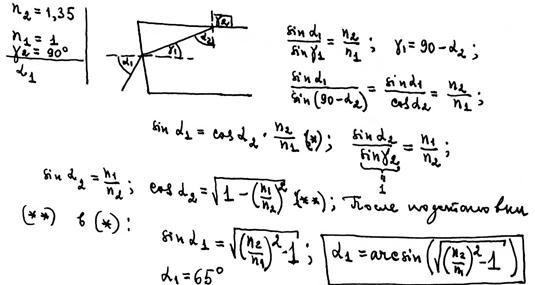 n₂ = 1,35
n₁ = 1
γ₂ = 90°
α₁
γ₂
α₂
γ₁
α₁
sin α₁ / sin γ₁ = n₂ / n₁ ; γ₁ = 90 - α₂ ;
sin α₁ / sin(90 - α₂) = sin α₁ / cos α₂ = n₂ / n₁ ;
sin α₁ = cos α₂ · n₂ / n₁ (*) ; sin α₂ / sin γ₂ = n₁ / n₂ ;
1
sin α₂ = n₁ / n₂ ; cos α₂ = √(1 - (n₁/n₂)²) (**) ; После подстановки
(**) в (*) :
sin α₁ = √((n₂/n₁)² - 1) ; α₁ = arcsin (√((n₂/n₁)² - 1))
α₁ = 65°